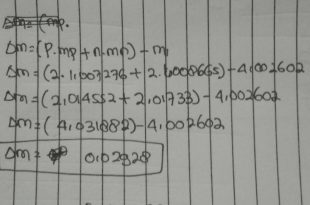 Δm=(P.mp+n.mn)-m
Δm=(2.1,007276+2.1,008665)-4,002602
Δm=(2,014552+2,01733)-4,002602
Δm=(4,031882)-4,002602
Δm= 0,02928